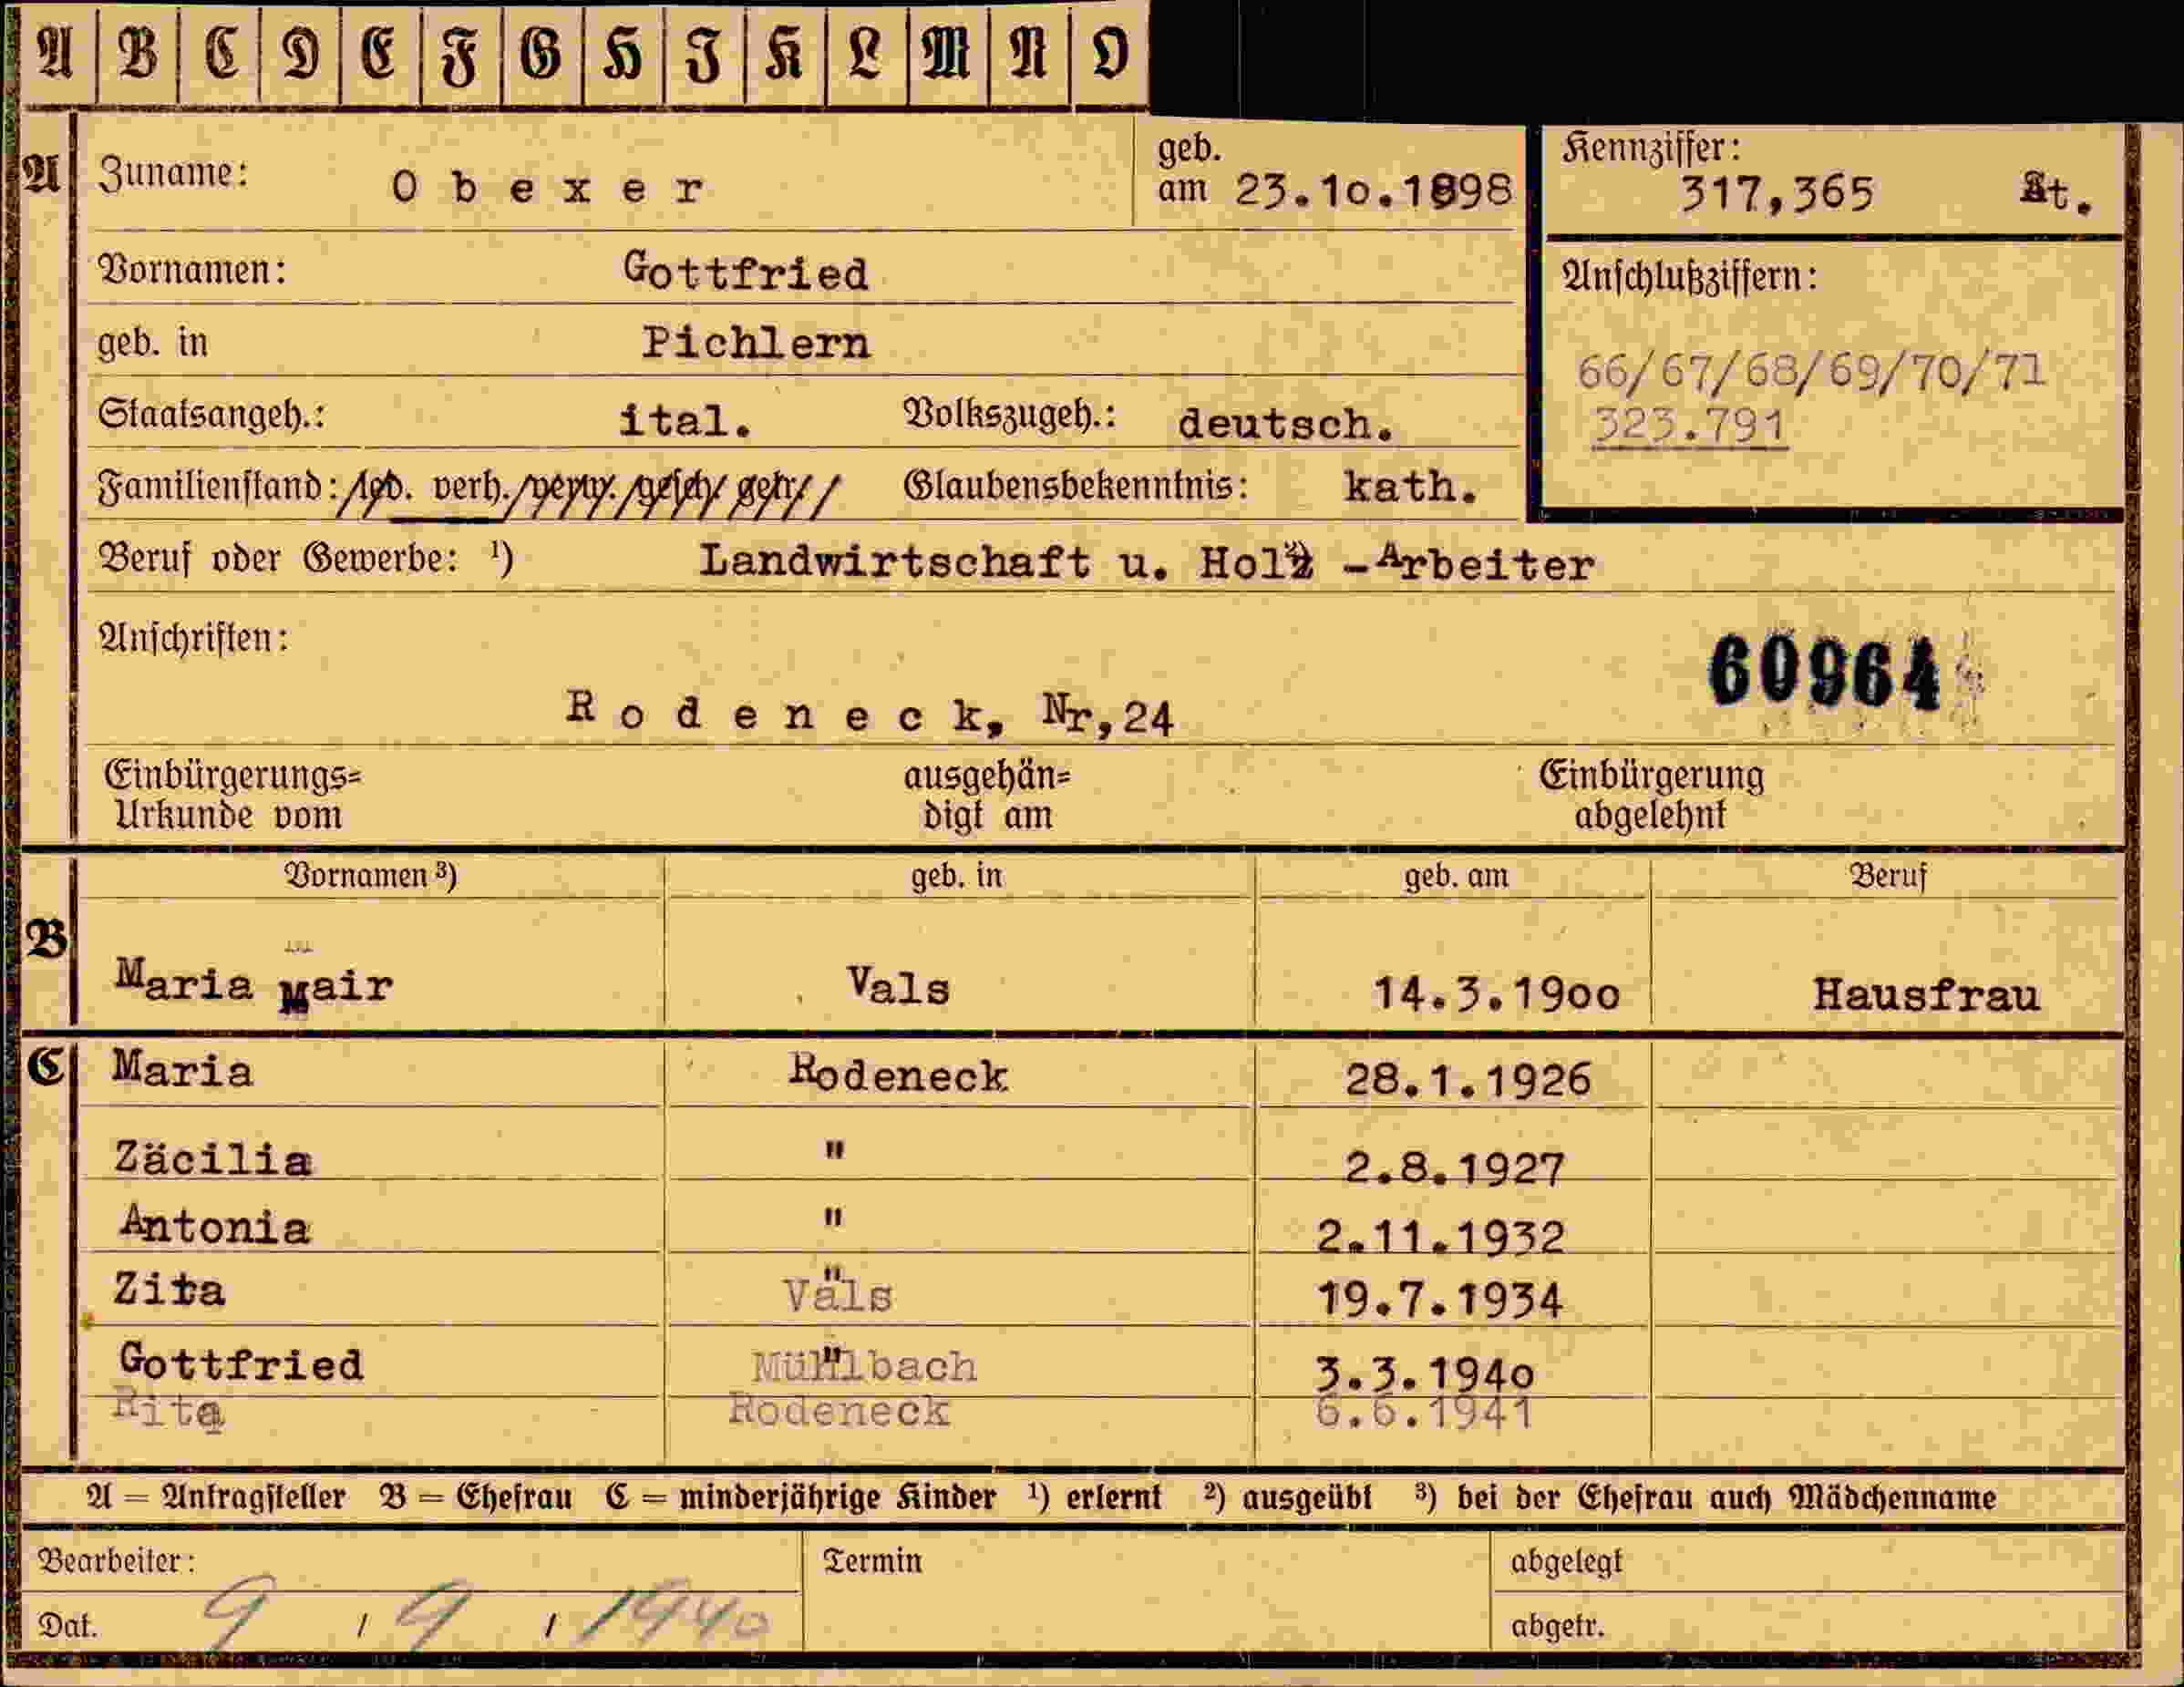 A B C D E F G H I K L M N O
A Zuname: Obexer geb. am 23.10.1898 Kennziffer: 317,365 St.
Vornamen: Gottfried Anschlußziffern:
geb. in Pichlern 66/67/68/69/70/71
Staatsangeh.: ital. Volkszugeh.: deutsch. 323.791
Familienstand: led. verh. verw. gesch. getr. Glaubensbekenntnis: kath.
Beruf oder Gewerbe: ¹) Landwirtschaft u. Holz -Arbeiter
Anschriften: 60964
Rodeneck, Nr,24
Einbürgerungs= ausgehän= Einbürgerung
Urkunde vom digt am abgelehnt
Vornamen ³) geb. in geb. am Beruf
B Maria Mair Vals 14.3.1900 Hausfrau
C Maria Rodeneck 28.1.1926
Zäcilia " 2.8.1927
Antonia " 2.11.1932
Zita " Vals 19.7.1934
Gottfried " Mühlbach 3.3.1940
Rita Rodeneck 6.6.1941
A = Antragsteller B = Ehefrau C = minderjährige Kinder ¹) erlernt ²) ausgeübt ³) bei der Ehefrau auch Mädchenname
Bearbeiter: Termin abgelegt
Dat. 9 / 9 / 1940 abgetr.